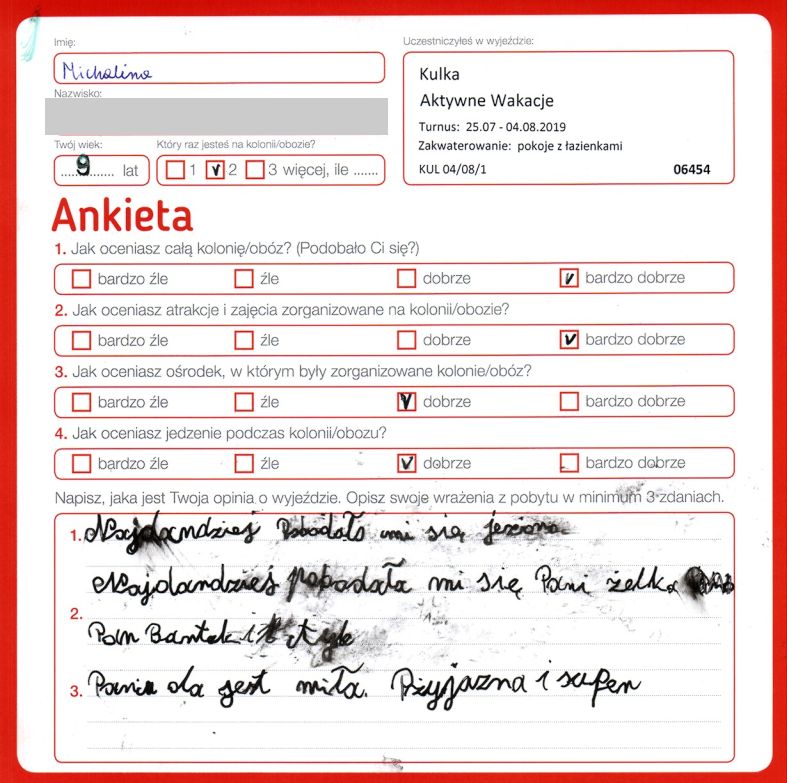 Imię:
Michalina
Nazwisko:
Twój wiek:
9 lat
Który raz jesteś na kolonii/obozie?
1 v 2 3 więcej, ile .......
Uczestniczyłeś w wyjeździe:
Kulka
Aktywne Wakacje
Turnus: 25.07 - 04.08.2019
Zakwaterowanie: pokoje z łazienkami
KUL 04/08/1 06454
Ankieta
1. Jak oceniasz całą kolonię/obóz? (Podobało Ci się?)
bardzo źle źle dobrze v bardzo dobrze
2. Jak oceniasz atrakcje i zajęcia zorganizowane na kolonii/obozie?
bardzo źle źle dobrze v bardzo dobrze
3. Jak oceniasz ośrodek, w którym były zorganizowane kolonie/obóz?
bardzo źle źle v dobrze bardzo dobrze
4. Jak oceniasz jedzenie podczas kolonii/obozu?
bardzo źle źle v dobrze bardzo dobrze
Napisz, jaka jest Twoja opinia o wyjeździe. Opisz swoje wrażenia z pobytu w minimum 3 zdaniach.
1. Najdandziej Pobodało mi się
Najdandziej pobadała mi się Pani żelka
2.
Pan Bantek i
3. Pania ola jest miła. Pżyjazna i supen